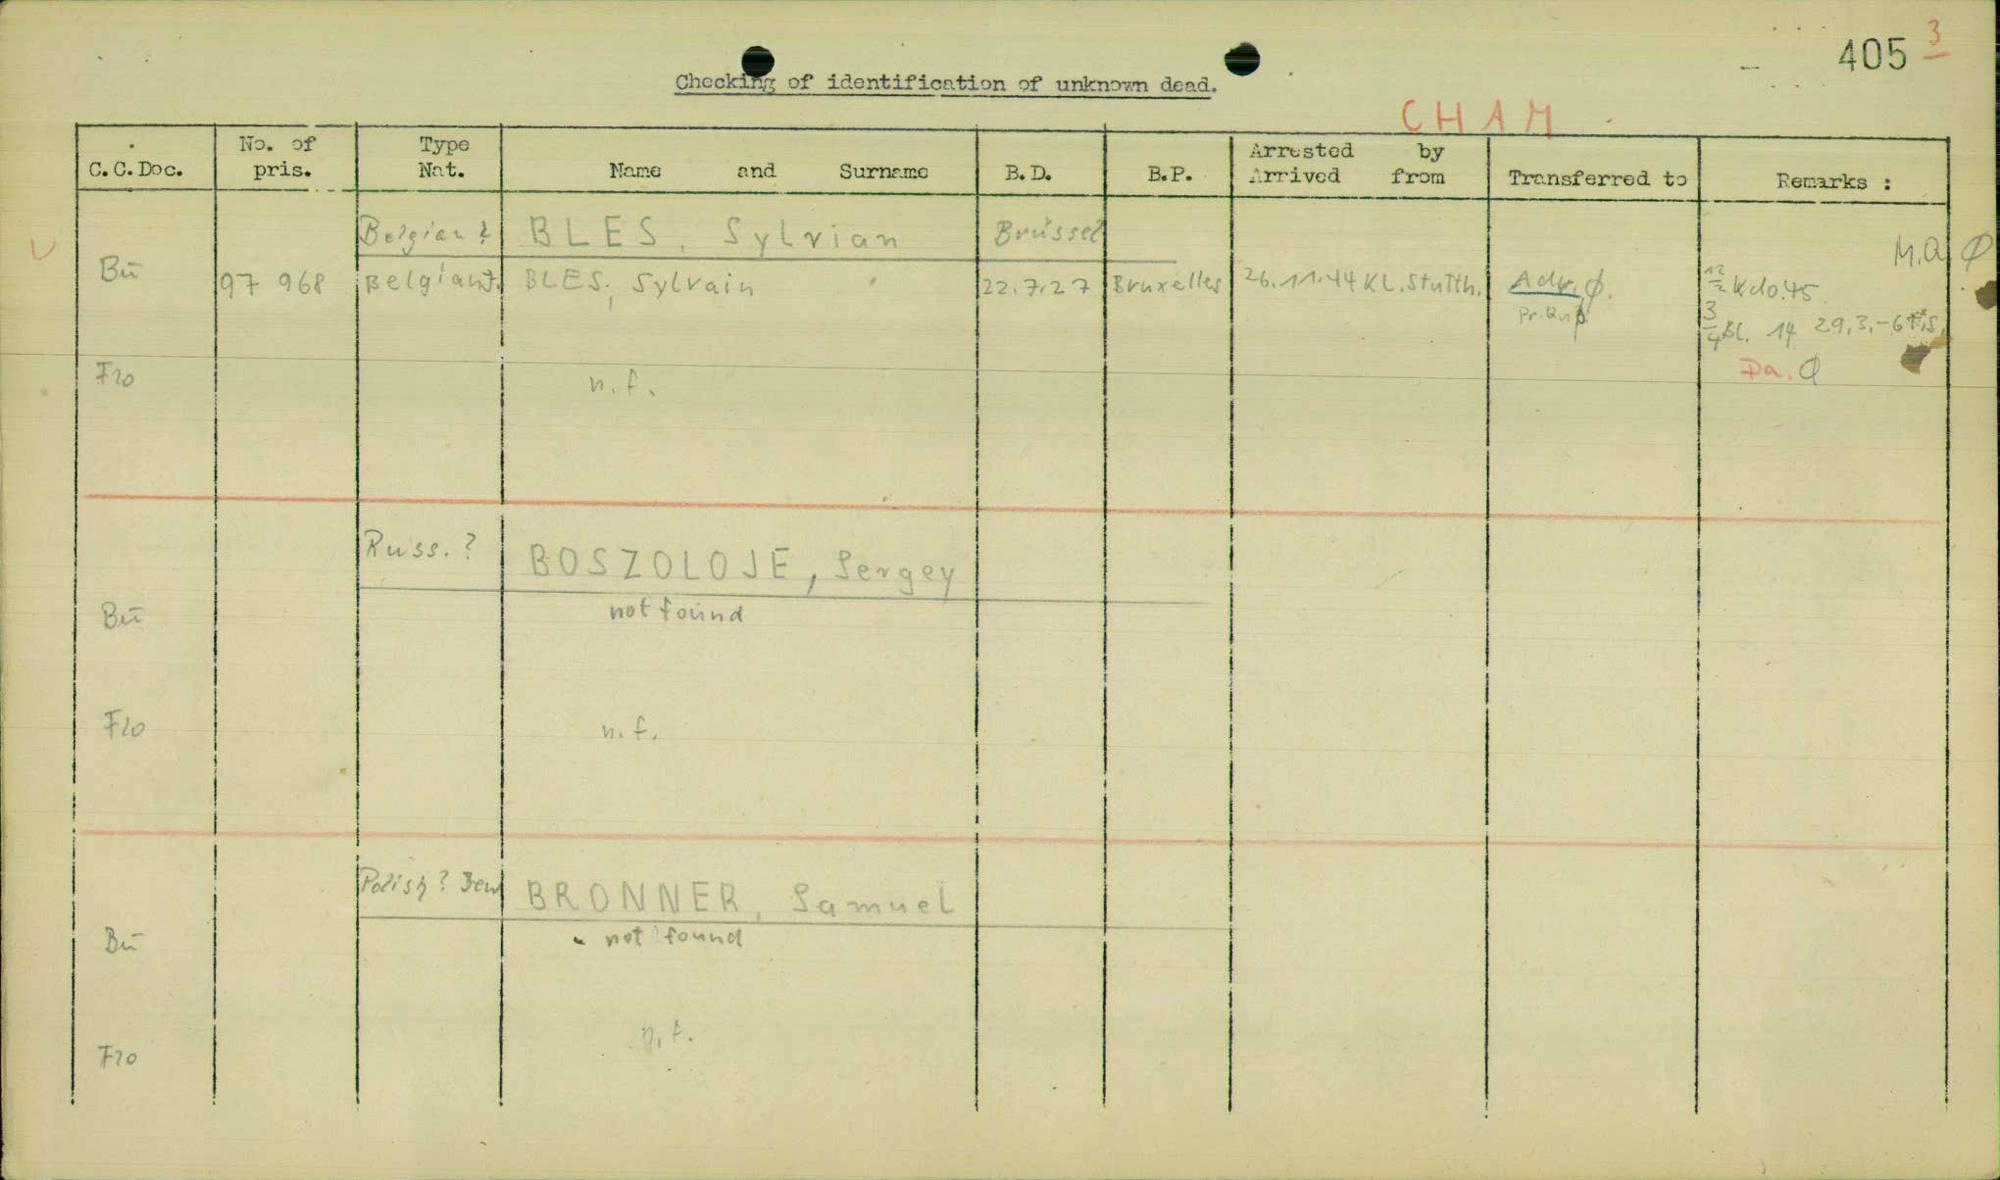 405 3
Checking of identification of unknown dead.
CHAM
C.C.Doc. No. of pris. Type Nat. Name and Surname B.D. B.P. Arrested by Arrived from Transferred to Remarks :
Belgian? BLES, Sylvian Brüssel
M.a Ø
Bū 97 968 Belgian BLES, Sylvain 22.7.27 Bruxelles 26.11.44 KL.Stutth. Ø. 12/2 Kdo.45
3/4 Bl. 14 29.3.-6
Da. Ø
Flo n.f.
Russ.? BOSZOLOJE, Sergey
Bū not found
Flo n.f.
Polish? Jew BRONNER, Samuel
Bū not found
Flo n.f.